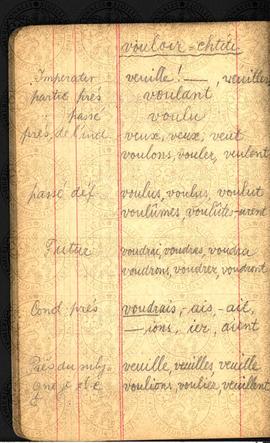 vouloir = chtíti
Imperatif veuille! —, veuillez
partic prés voulant
passé voulu
prés. de l'ind. veux, veux, veut
voulons, voulez, veulent
passé déf. voulus, voulus, voulut
voulûmes, voulûtes -urent
Futur voudrai, voudras, voudra
voudrons, voudrez, voudront
Cond. prés voudrais, -ais, -ait,
—, ions, iez, aient
Prés du subj. veuille, veuilles, veuille
voulions, vouliez, veuillent